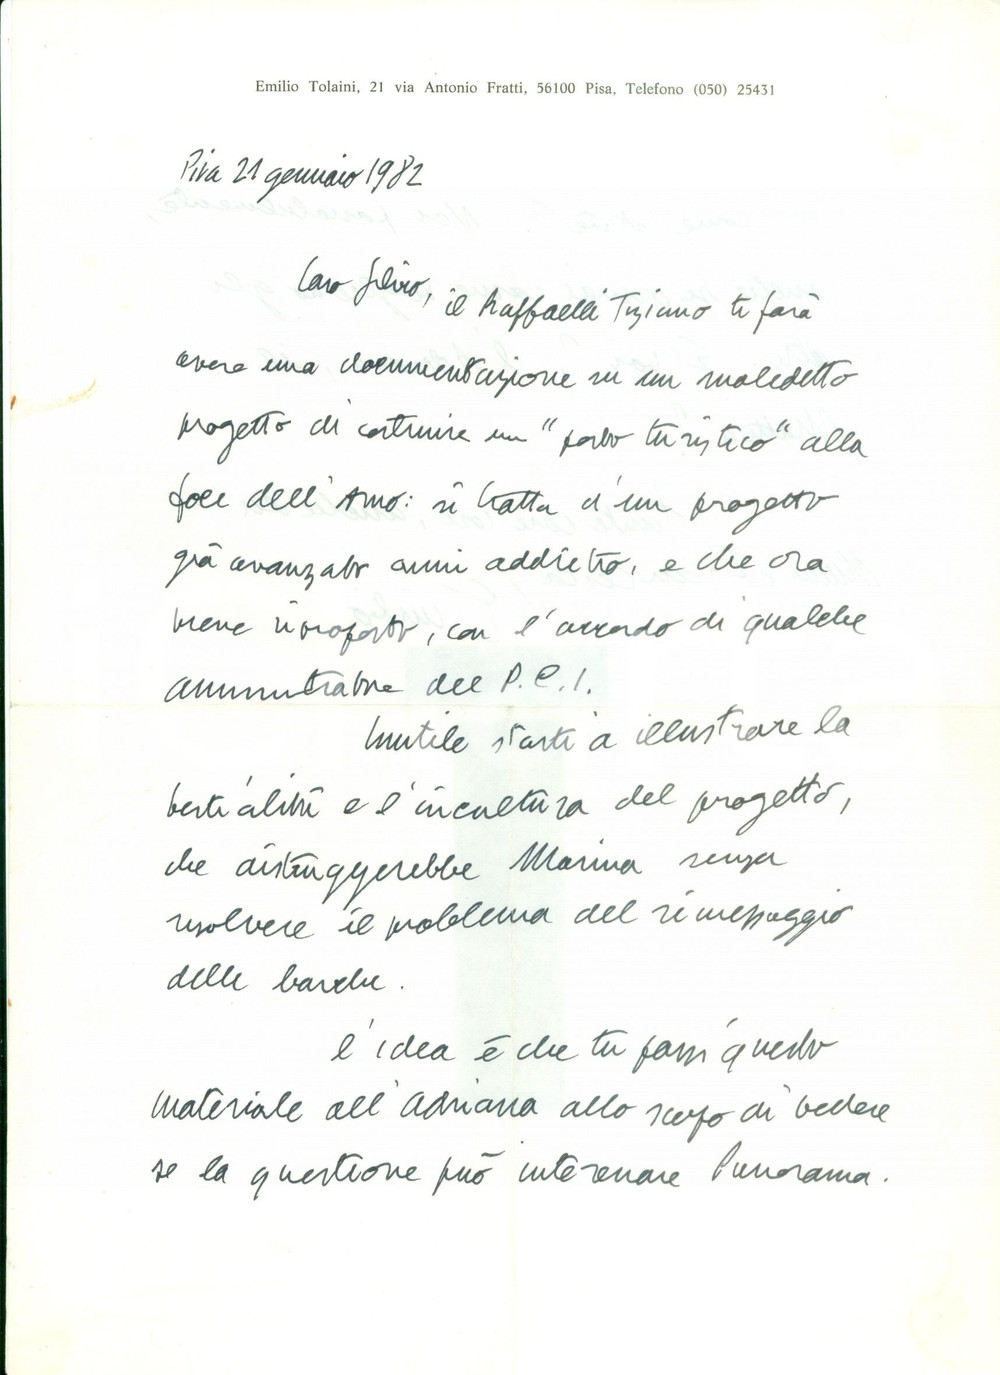 Emilio Tolaini, 21 via Antonio Fratti, 56100 Pisa, Telefono (050) 25431
Pisa 21 gennaio 1982
Caro Silvio, il Raffaelli Tiziano ti farà
avere una documentazione su un maledetto
progetto di costruire un "porto turistico" alla
foce dell'Arno: si tatta d'un progetto
già avanzato anni addietro, e che ora
viene riproposto, con l'accordo di qualche
amministratore del P.C.I.
Inutile starti a illustrare la
bestialità e l'incultura del progetto,
che distruggerebbe Marina senza
risolvere il problema del rimessaggio
delle barche.
L'idea è che tu passi questo
materiale all'Adriana allo scopo di vedere
se la questione può interessare Panorama.